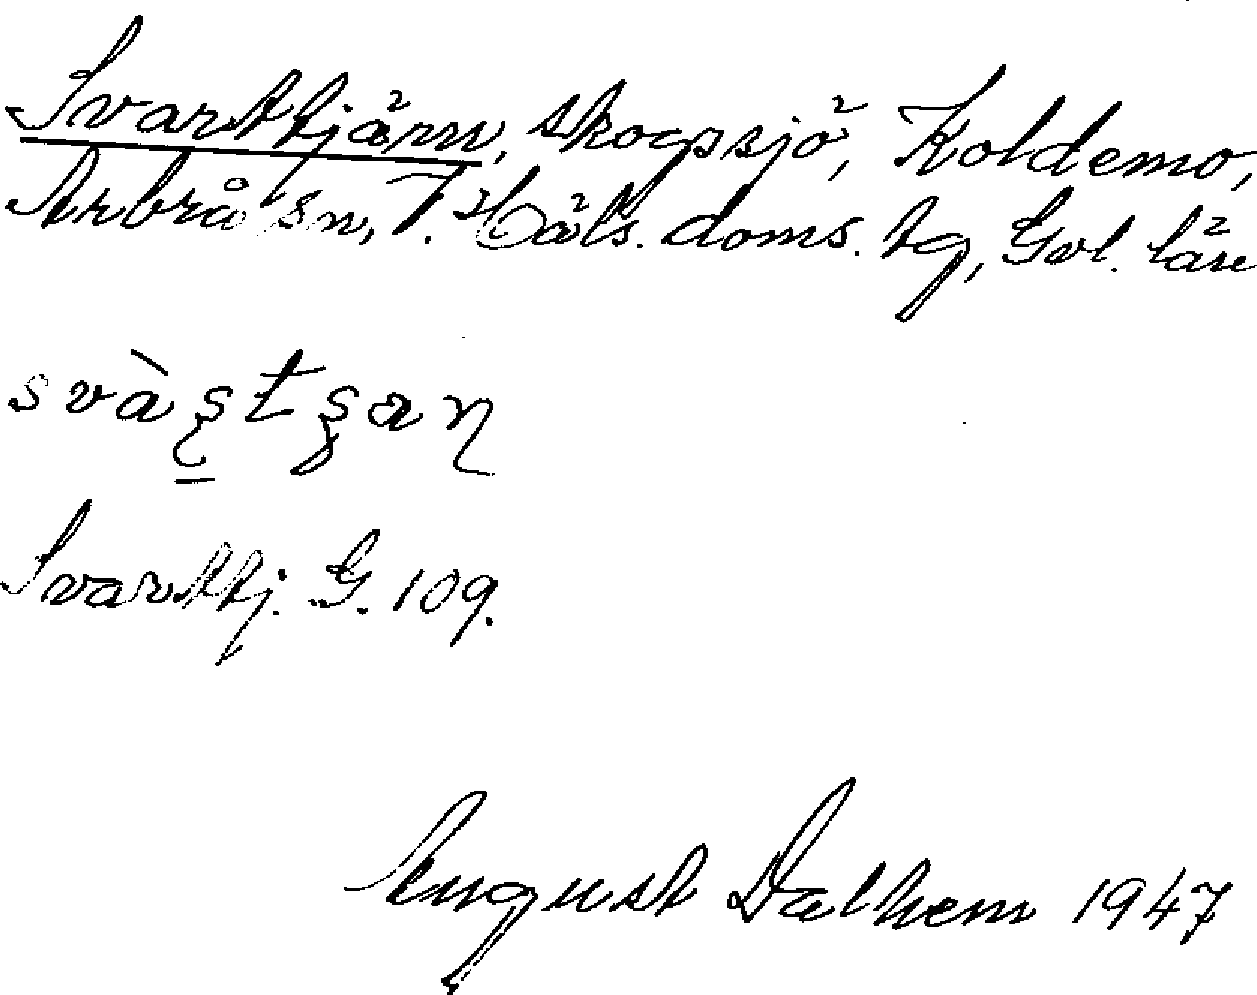 Svarttjärn, skogssjö, Koldemo,
Arbrå sn, V. Häls. doms. tg, Gvl. län
svàʂtʂan
Svarttj. G. 109.
August Dalhem 1947